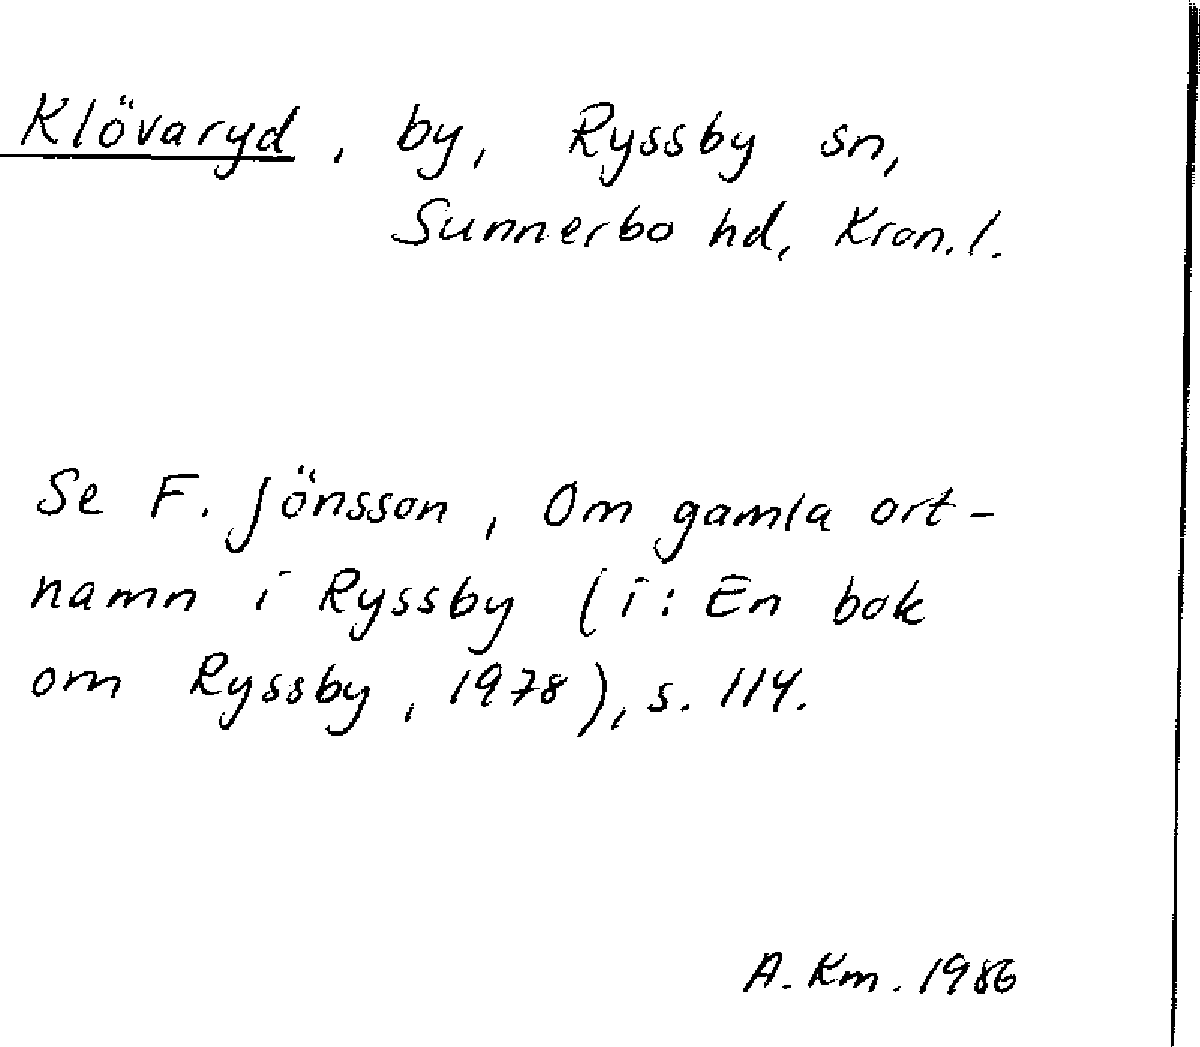 Klövaryd, by, Ryssby sn,
Sunnerbo hd, Kron.l.
Se F. Jönsson, Om gamla ort-
namn i Ryssby (i: En bok
om Ryssby, 1978), s. 114.
A. Km. 1986